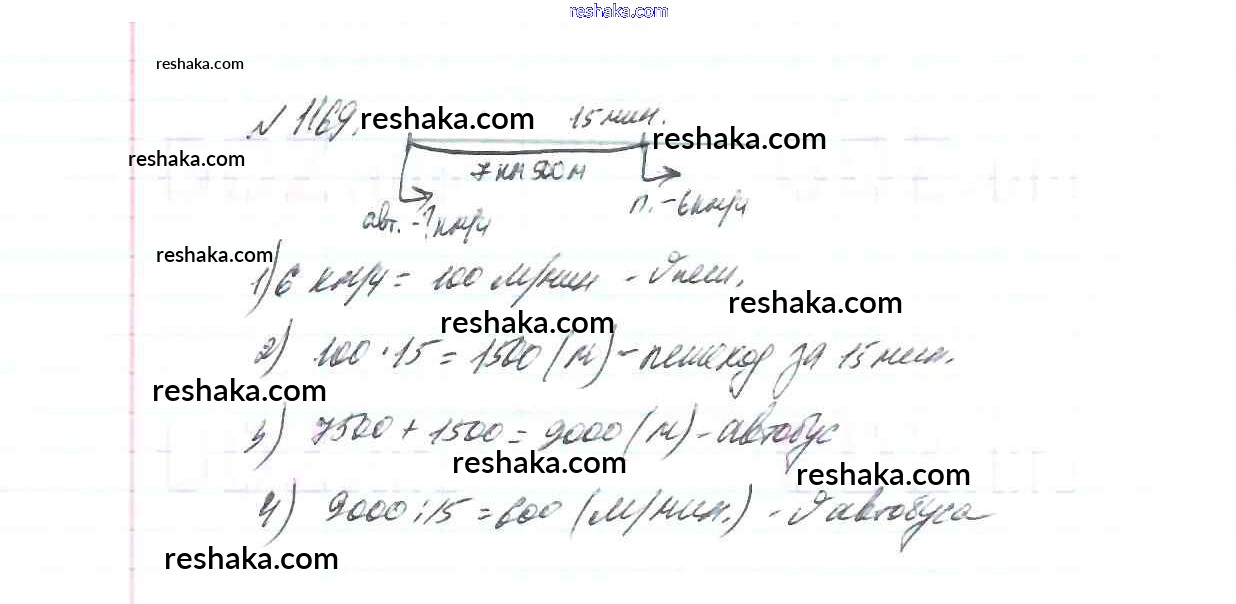 reshaka.com
reshaka.com
№ 1169. reshaka.com 15 мин. reshaka.com
reshaka.com
7 км 500 м
п. - 6 км/ч
авт. - ? км/ч
reshaka.com
1) 6 км/ч = 100 м/мин - ϑ пеш.
reshaka.com
reshaka.com
2) 100 · 15 = 1500 (м) - пешеход за 15 мин.
reshaka.com
3) 7500 + 1500 = 9000 (м) - автобус
reshaka.com
reshaka.com
4) 9000 : 15 = 600 (м/мин.) - ϑ автобуса
reshaka.com